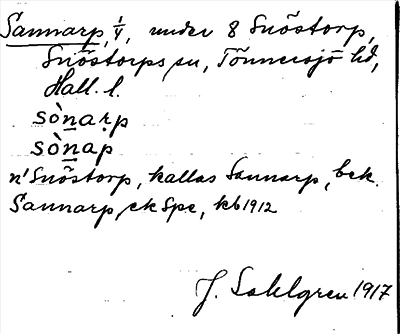 Sannarp, 1/4, under 8 Snöstorp,
Snöstorps sn, Tönnersjö hd,
Hall. l.
sònaṛp
sònap
n' Snöstorp, kallas Sannarp, bek.
Sannarp, ek Spe, kb 1912
J. Sahlgren 1917